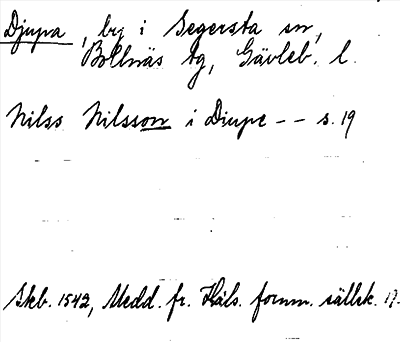 Djupa, by i Segersta sn,
Bollnäs tg, Gävleb. l.
Nilss Nilsson i Diupe -- s. 19
Skb. 1542, Medd. fr. Häls. fornm. sällsk. 17.